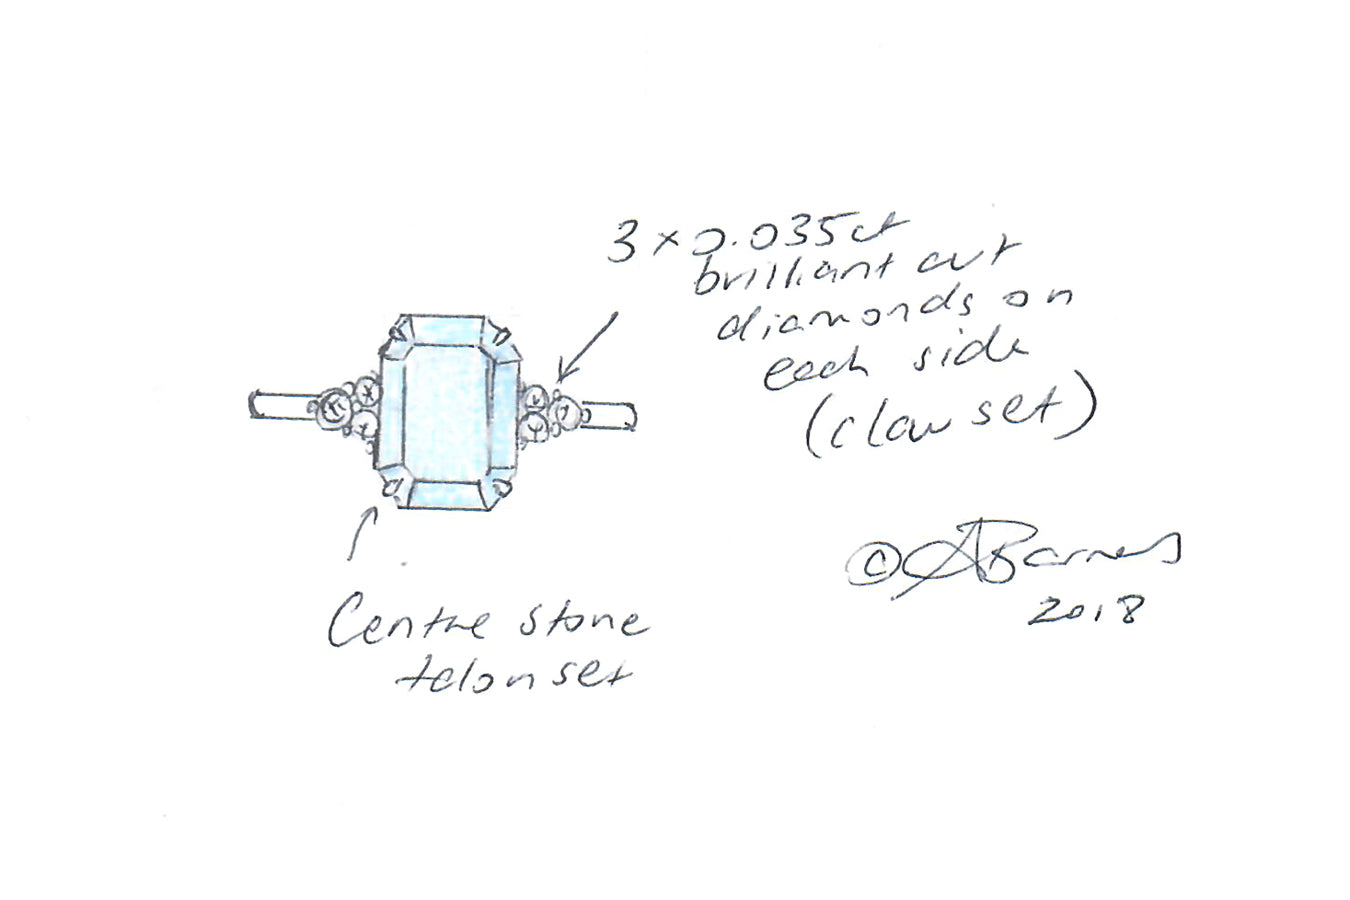 3 x 0.035ct
brilliant cut
diamonds on
each side
(claw set)
Centre stone
talon set
© ABarnes
2018